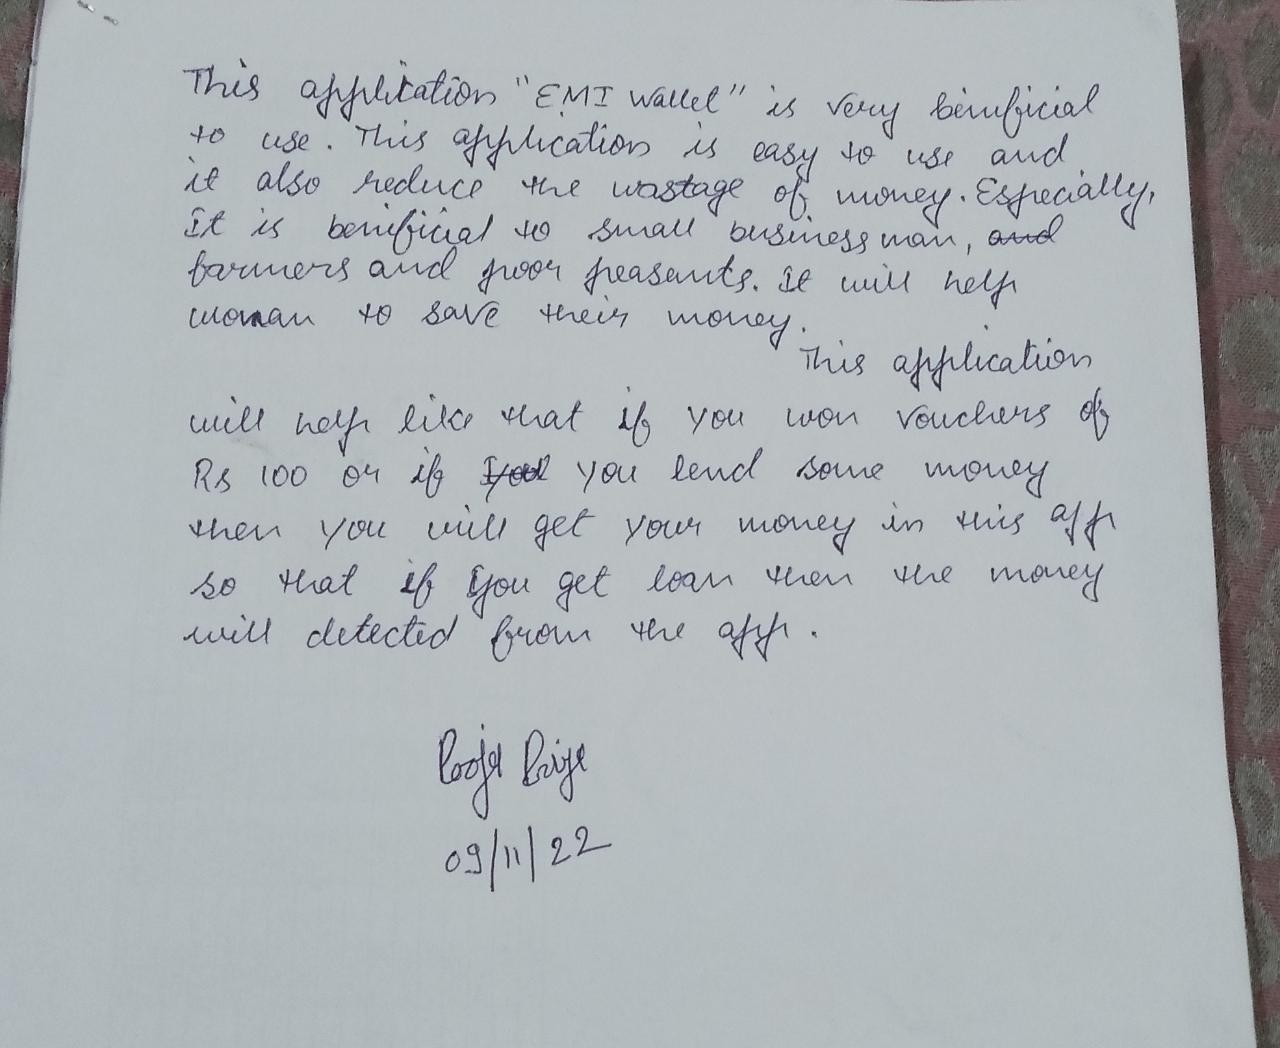 This application "EMI Wallet" is very benificial
to use. This application is easy to use and
it also reduce the wastage of money. Especially,
It is benificial to small business man, and
farmers and poor peasants. It will help
woman to save their money.
This application
will help like that if you won vouchers of
Rs 100 or if you lend some money
then you will get your money in this app
so that if you get loan then the money
will detected from the app.
Pooja
09/11/22